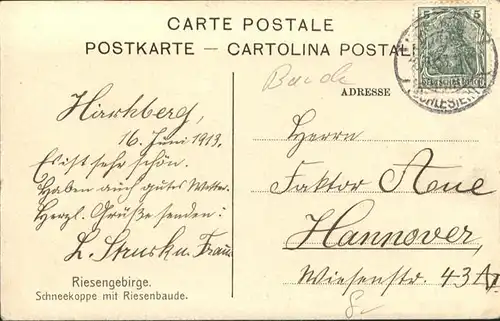 CARTE POSTALE
POSTKARTE — CARTOLINA POSTAL
5 5
(SCHLESIEN)
Baude
ADRESSE
Hirschberg,
16. Juni 1913.
Es ist sehr schön.
Haben auch gutes Wetter.
Herzl. Grüße senden:
u. Frau
Herrn
Faktor Aue
Hannover,
Wiesenstr. 43
8-
Riesengebirge.
Schneekoppe mit Riesenbaude.